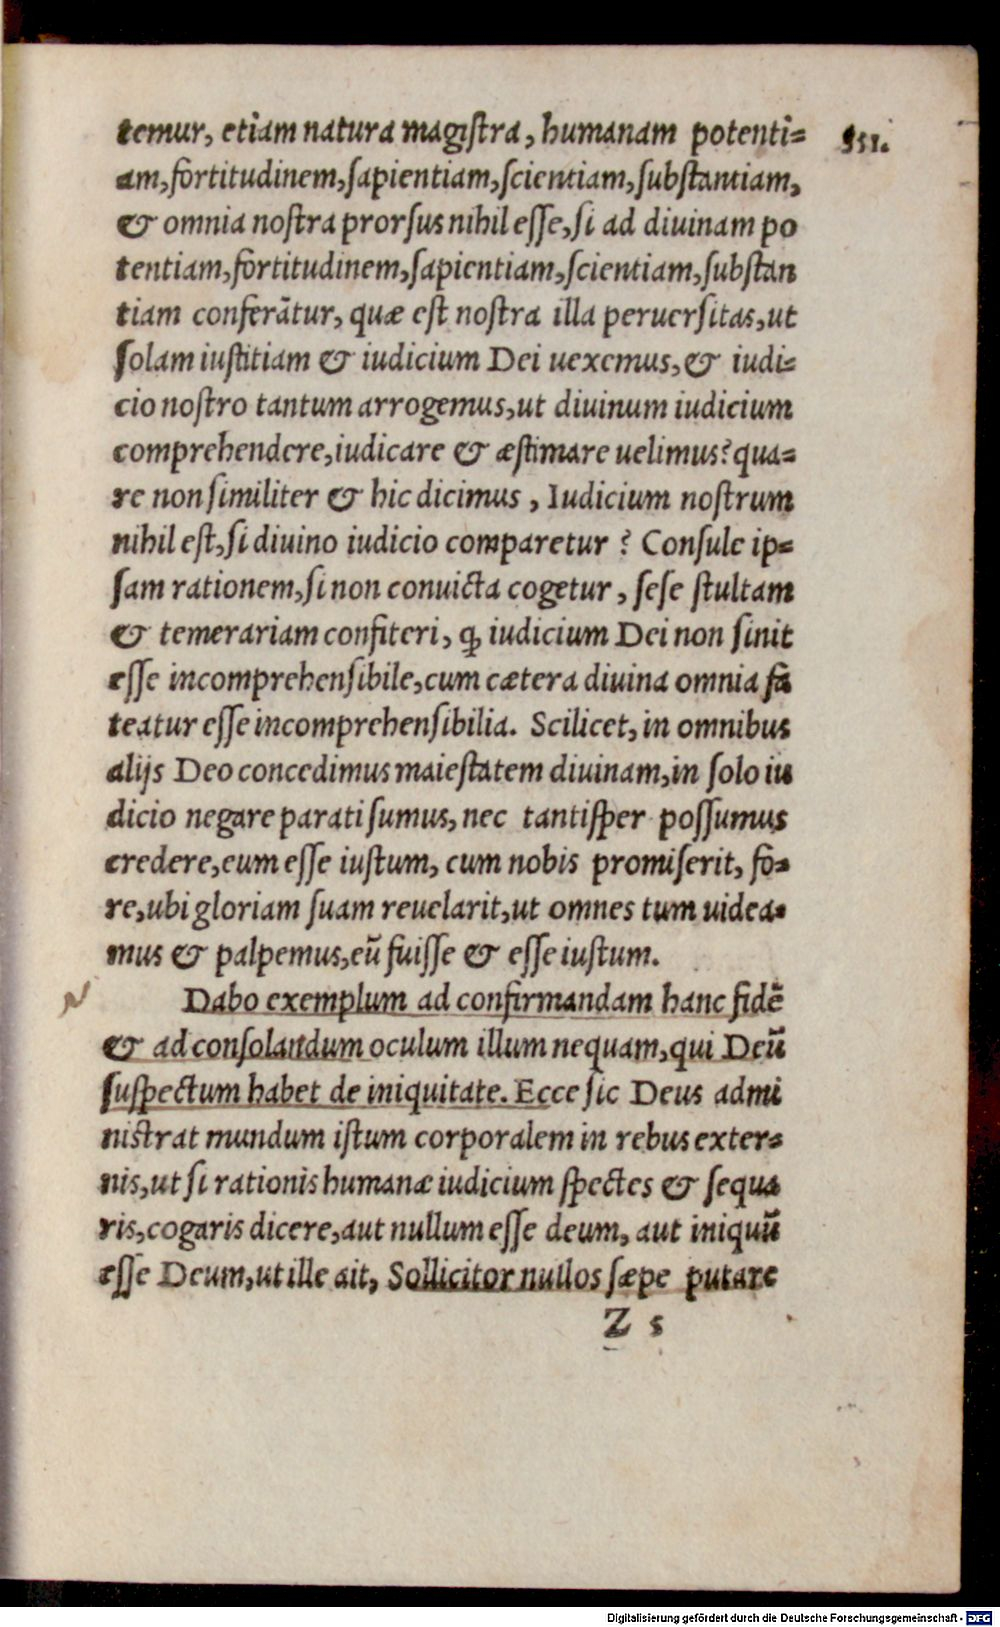 temur, etiam natura magiſtra, humanam potenti=
351.
am, fortitudinem, ſapientiam, ſcientiam, ſubſtantiam,
& omnia noſtra prorſus nihil eſſe, ſi ad diuinam po
tentiam, fortitudinem, ſapientiam, ſcientiam, ſubſtan
tiam conferãtur, quæ eſt noſtra illa peruerſitas, ut
ſolam iuſtitiam & iudicium Dei uexemus, & iudi=
cio noſtro tantum arrogemus, ut diuinum iudicium
comprehendere, iudicare & æſtimare uelimus? qua=
re non ſimiliter & hic dicimus, Iudicium noſtrum
nihil eſt, ſi diuino iudicio comparetur? Conſule ip=
ſam rationem, ſi non conuicta cogetur, ſeſe ſtultam
& temerariam confiteri, ꝙ iudicium Dei non ſinit
eſſe incomprehenſibile, cum cætera diuina omnia fa
teatur eſſe incomprehenſibilia. Scilicet, in omnibus
alijs Deo concedimus maieſtatem diuinam, in ſolo iu
dicio negare parati ſumus, nec tantiſper poſſumus
credere, eum eſſe iuſtum, cum nobis promiſerit, fo=
re, ubi gloriam ſuam reuelarit, ut omnes tum uidea=
mus & palpemus, eũ fuiſſe & eſſe iuſtum.
Dabo exemplum ad confirmandam hanc fidẽ
& ad conſolandum oculum illum nequam, qui Deũ
ſuſpectum habet de iniquitate. Ecce ſic Deus admi
niſtrat mundum iſtum corporalem in rebus exter=
nis, ut ſi rationis humanæ iudicium ſpectes & ſequa
ris, cogaris dicere, aut nullum eſſe deum, aut iniquũ
eſſe Deum, ut ille ait, Sollicitor nullos ſæpe putare
Z 5
Digitalisierung gefördert durch die Deutsche Forschungsgemeinschaft - DFG